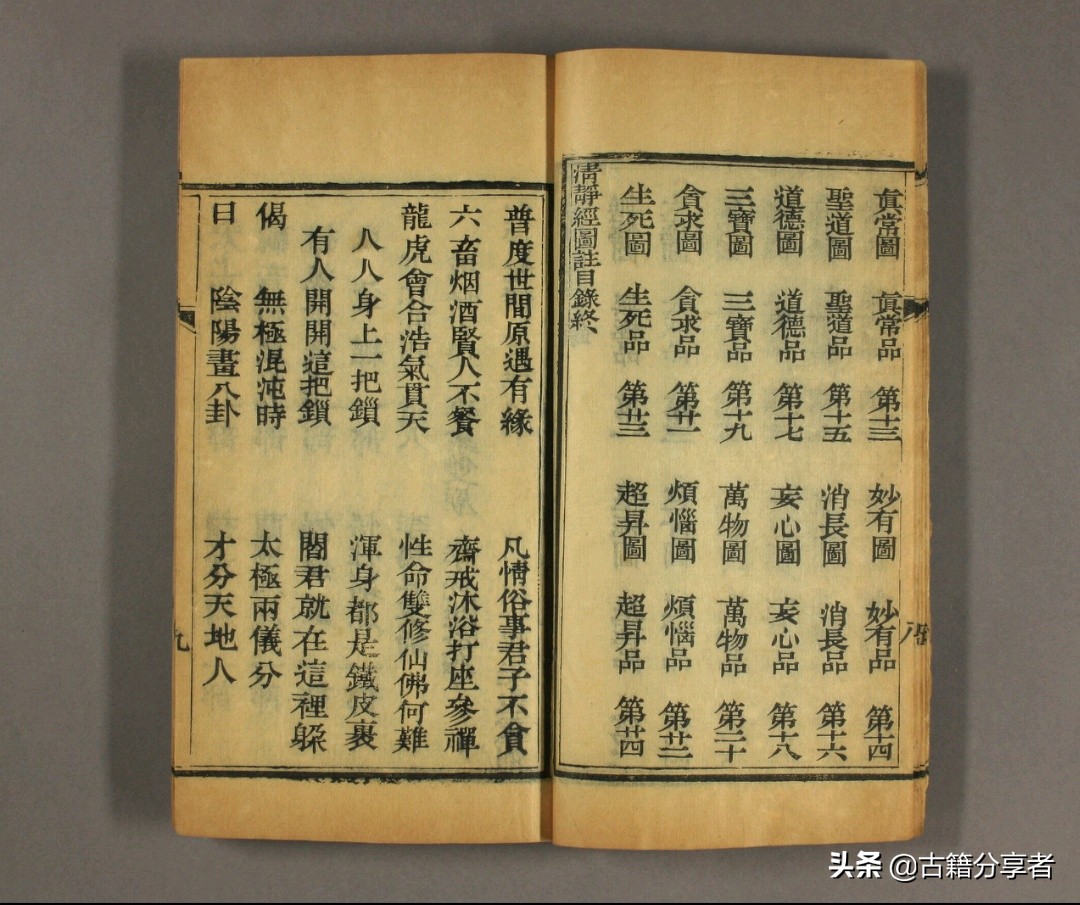 眞常圖 眞常品 第十三 妙有圖 妙有品 第十四
聖道圖 聖道品 第十五 消長圖 消長品 第十六
道德圖 道德品 第十七 妄心圖 妄心品 第十八
三寶圖 三寶品 第十九 萬物圖 萬物品 第二十
貪求圖 貪求品 第廿一 煩惱圖 煩惱品 第廿二
生死圖 生死品 第廿三 超昇圖 超昇品 第廿四
清靜經圖註目錄終
八
普度世間原遇有緣 凡情俗事君子不貪
六畜烟酒賢人不餐 齋戒沐浴打座參禪
龍虎會合浩氣貫天 性命雙修仙佛何難
人人身上一把鎖 渾身都是鐵皮裹
有人開開這把鎖 閻君就在這裡躲
偈 無極混沌時 太極兩儀分
曰 陰陽畫八卦 才分天地人
九
头条 @古籍分享者